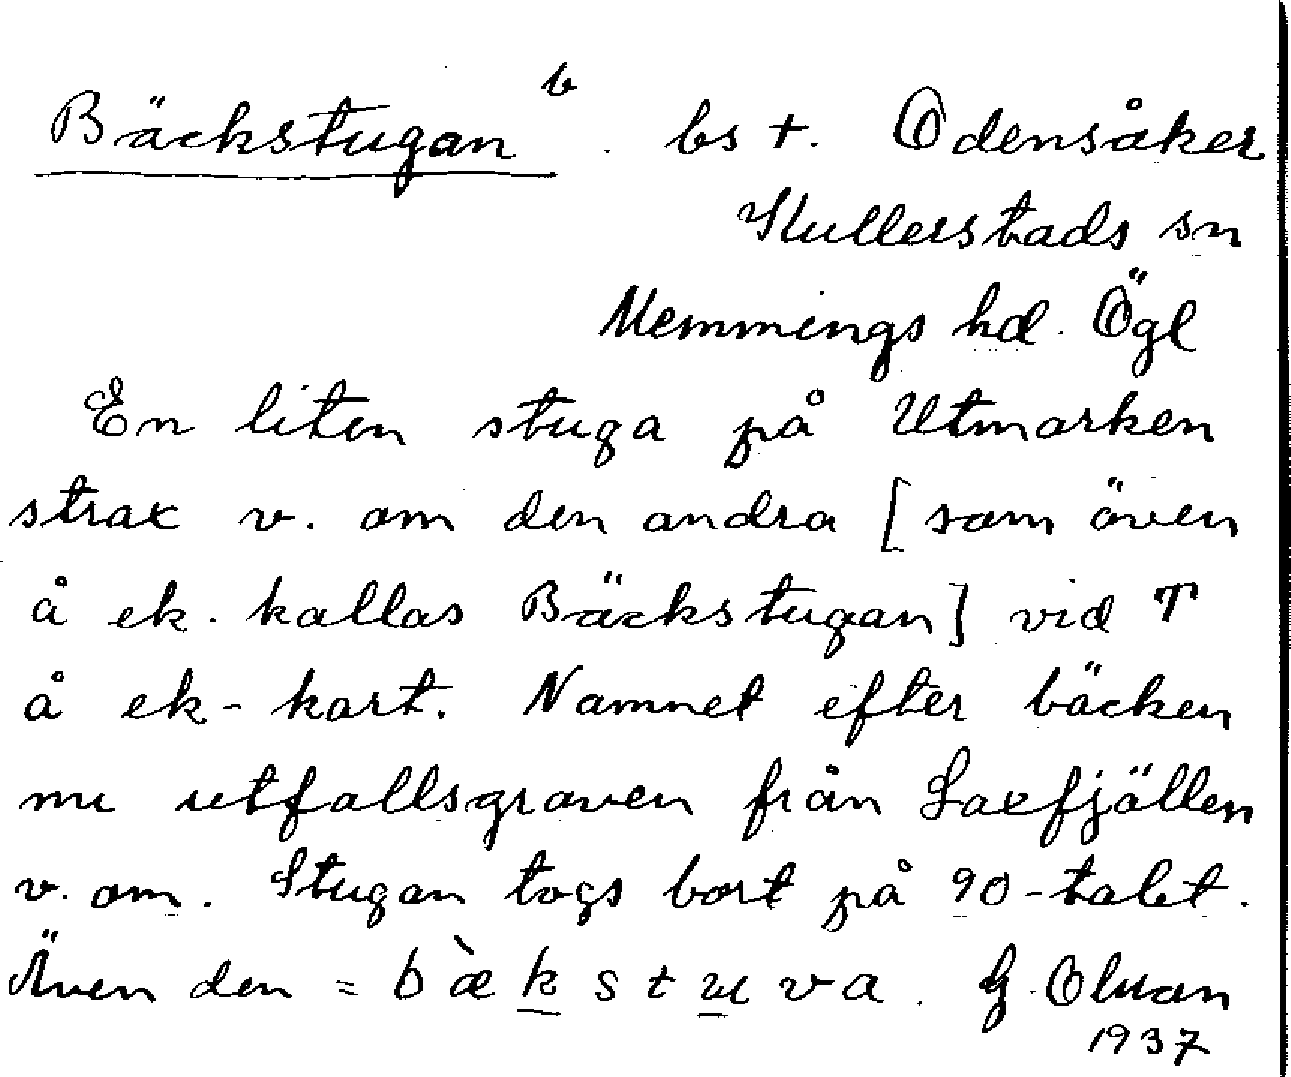 Bäckstugan b. bs t. Odensåker
Kullerstads sn
Memmings hd. Ögl
En liten stuga på Utmarken
strax v. om den andra [som även
å ek. kallas Bäckstugan] vid T
å ek-kart. Namnet efter bäcken
nu utfallsgraven från Laxfjällen
v. om. Stugan togs bort på 90-talet.
Även den = bæ̀kstuva. G.
1937